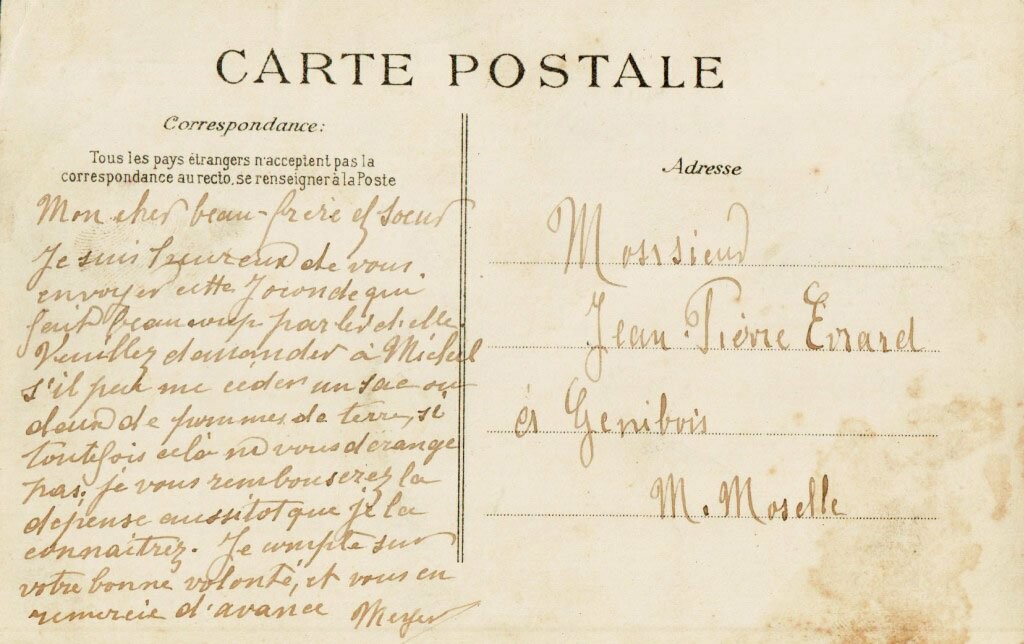 CARTE POSTALE
Correspondance:
Tous les pays étrangers n'acceptent pas la
correspondance au recto, se renseigner à la Poste
Mon cher beau-frère et soeur
Je suis heureux de vous
envoyer cette Joconde qui
fait beaucoup parler d'elle
Veuillez demander à Michel
s'il peut me céder un sac ou
deux de pommes de terre, si
toutefois cela ne vous dérange
pas. je vous rembouserez la
dépense aussitot que je la
connaitrez. Je compte sur
votre bonne volonté, et vous en
remercie d'avance Meyer
Adresse
Monsieur
Jean-Pierre Evrard
à Genibois
M. Moselle